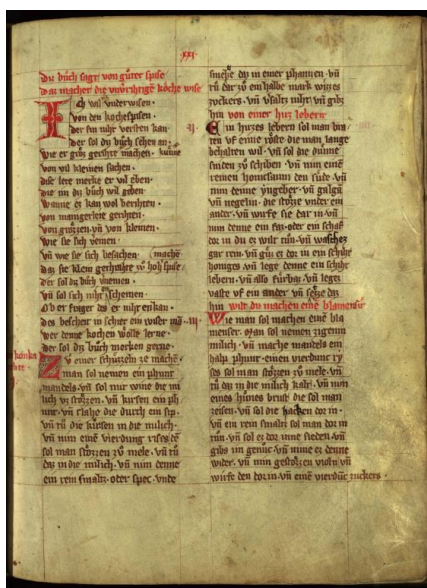 xxj.
Diz bůch sagt von gůter spise
Daz machet die vnv̓rihtigē kȫche wise
Ich wil vnderwisen ·
von den kochespisen ·
der sin niht versten kan ·
der sol diz bůch sehen an ·
wie er gůt gerihte machen · kunne
von vil kleinen sachen ·
dise lere merke er vil eben ·
die im diz bůch wil geben ·
wanne er kan wol berihten ·
von mangerleie gerihten ·
von grozzen vn̄ von kleinen ·
wie sie sich vereinen ·
vn̄ wie sie sich besachen · machē
daz sie klein gerihte zv̊ hoh spise
der sol diz bůch vernemen ·
vn̄ sol sich niht schemen ·
Ob er fraget des er niht enkan ·
des bescheit in schier ein wiser man ·
wer denne kochen wȯlle lerne ·
der sol diz bůch merken gerne ·
Zu einer schüzzeln ze machē ·
man sol nemen ein phunt
mandels · vn̄ sol mit wine die mi
lich vz stozzen · vn̄ kirsen ein ph
unt · vn̄ slahe die durch ein sip ·
vn̄ tů die kirsen in die milich ·
vn̄ nim eine vierdung rises dē
sol man stozzen zů mele · vn̄ tů
daz in die milich · vn̄ nim denne
ein rein smaltz · oder spec · vnde
smeltze daz in einer phannen · vn̄
tů dar zů ein halbe mark wizzes
zuckers · vn̄ v̓saltz niht · vn̄ gibz
hin von einer hirz lebern
Ein hirzes lebern sol man bra
ten vf eime roste die man lange
behalten wil · vn̄ sol die dünne
sniden zů schiben · vn̄ nim eine
reinen honicsaum den süde · vn̄
nim denne yngeber · vn̄ galgā
vn̄ negelin · die stozze vnder ein
ander · vn̄ wirfe sie dar in · vn̄
nim denne ein faz · oder ein schaf
dor in du ez wilt tůn · vn̄ waschez
gar rein · vn̄ giuz dor in ein schiht
honiges vn̄ lege denne ein schiht
lebern · vn̄ also fürbaz · vn̄ leges
vaste vf ein ander · vn̄ setze daz
hin wilt du machen einē blamensir
Wie man sol machen eine bla
menser · man sol nemen zigenin
milich · vn̄ mache mandels ein
halp phunt · einen vierdunc ry
ses sol man stozzen zů mele · vn̄
tů daz in die milich kalt · vn̄ nim
eines hůnes brust die sol man
zeisen · vn̄ sol die hacken dor in ·
vn̄ ein rein smaltz sol man dor in
tůn · vn̄ sol ez dor inne sieden · vn̄
gibs im genůc · vn̄ nime ez denne
wider · vn̄ nim gestozzen violn vn̄
wirfe den dor in · vn̄ eine vierdūc zuckers ·